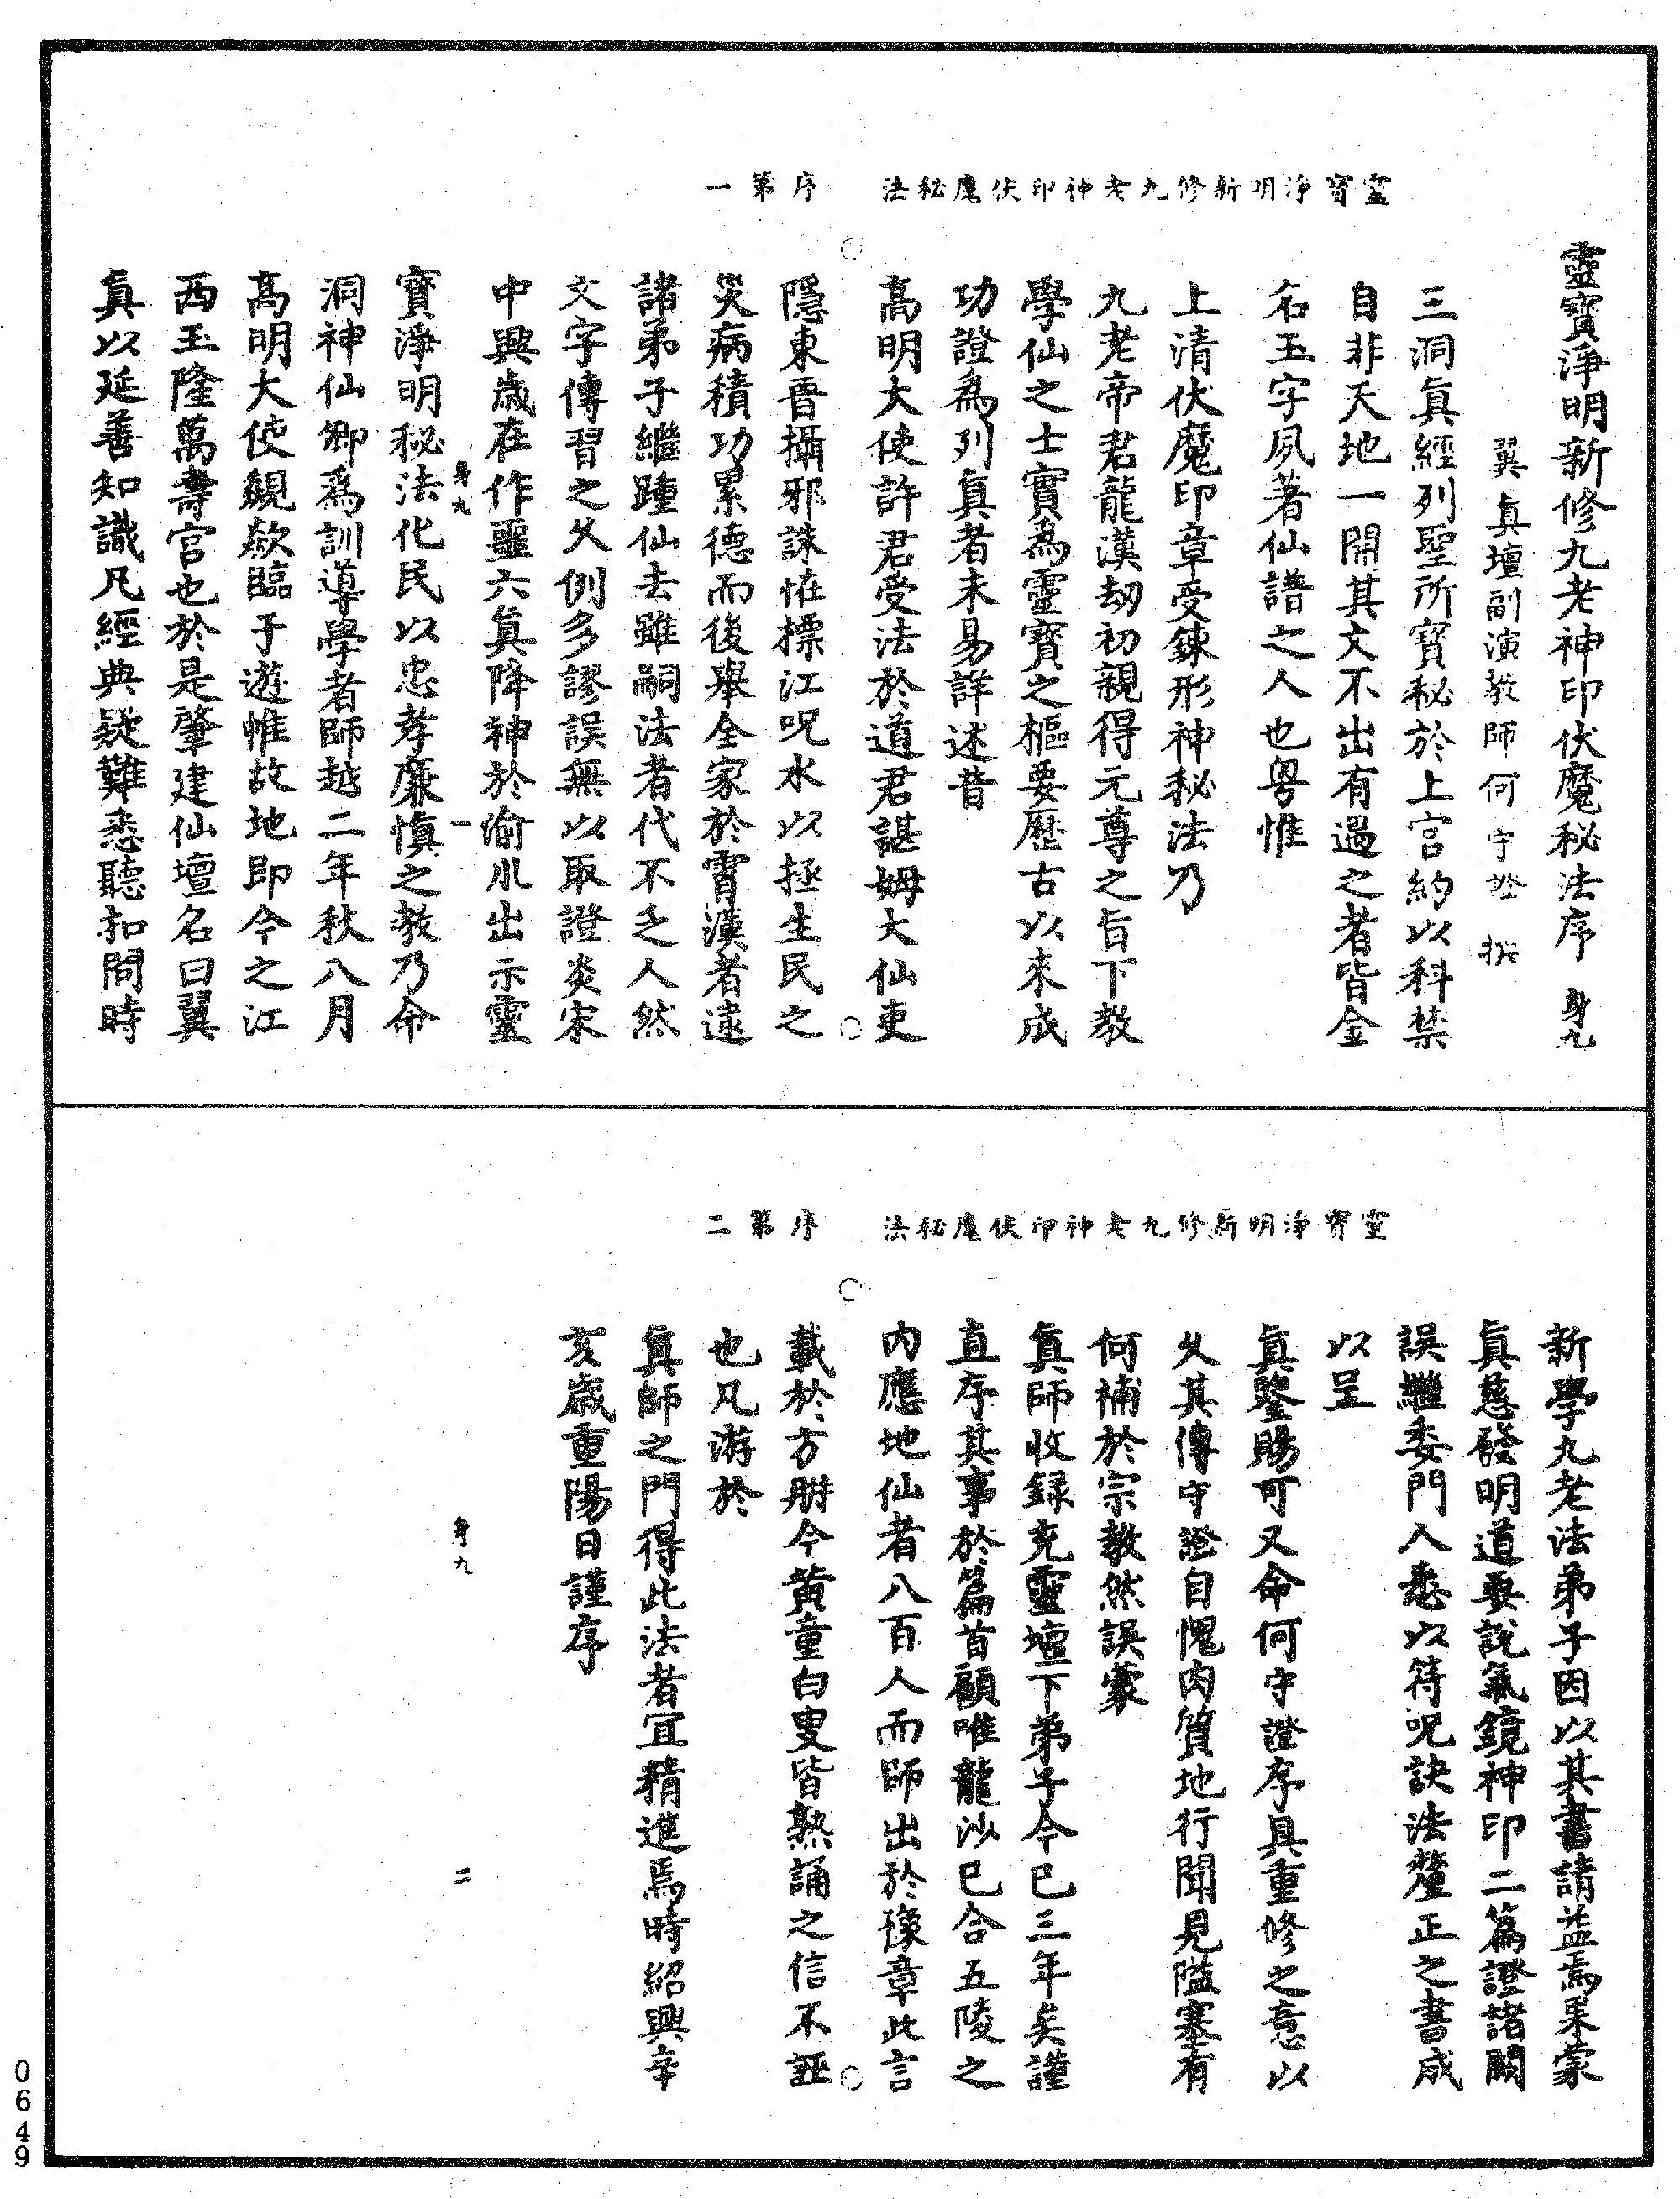 靈寶淨明新修九老神印伏魔秘法　序　第一
靈寶淨明新修九老神印伏魔秘法序　身九
翼眞壇副演教師何守證　撰
三洞眞經列聖所寶秘於上宮約以科禁
自非天地一開其文不出有遇之者皆金
名玉字夙著仙譜之人也粵惟
上清伏魔印章受鍊形神秘法乃
九老帝君龍漢劫初親得元尊之旨下教
學仙之士實爲靈寶之樞要歷古以來成
功證爲列眞者未易詳述昔
高明大使許君受法於道君諶姆大仙吏
隱東晉攝邪誅怪標江呪水以拯生民之
災病積功累德而後舉全家於霄漢者遠
諸弟子繼踵仙去雖嗣法者代不乏人然
文字傳習之久例多謬誤無以取證炎宋
中興歲在作噩六眞降神於渝水出示靈
寶淨明秘法化民以忠孝廉愼之教乃命
身九　一
洞神仙卿爲訓導學者師越二年秋八月
高明大使親歘臨于遊帷故地即今之江
西玉隆萬壽宮也於是肇建仙壇名曰翼
眞以延善知識凡經典疑難悉聽扣問時
靈寶淨明新修九老神印伏魔秘法　序　第二
新學九老法弟子因以其書請益焉果蒙
眞慈發明道要說氣鏡神印二篇證諸闕
誤繼委門人悉以符呪訣法釐正之書成
以呈
眞鑒賜可又命何守證序具重修之意以
久其傳守證自愧肉質地行聞見隘塞有
何補於宗教然誤蒙
眞師收録充靈壇下弟子今巳三年矣謹
直序其事於篇首顧唯龍沙巳合五陵之
内應地仙者八百人而師出於豫章此言
載於方冊今黄童白叟皆熟誦之信不誣
也凡游於
眞師之門得此法者冝精進焉時紹興辛
亥歲重陽日謹序
身九　二
0649